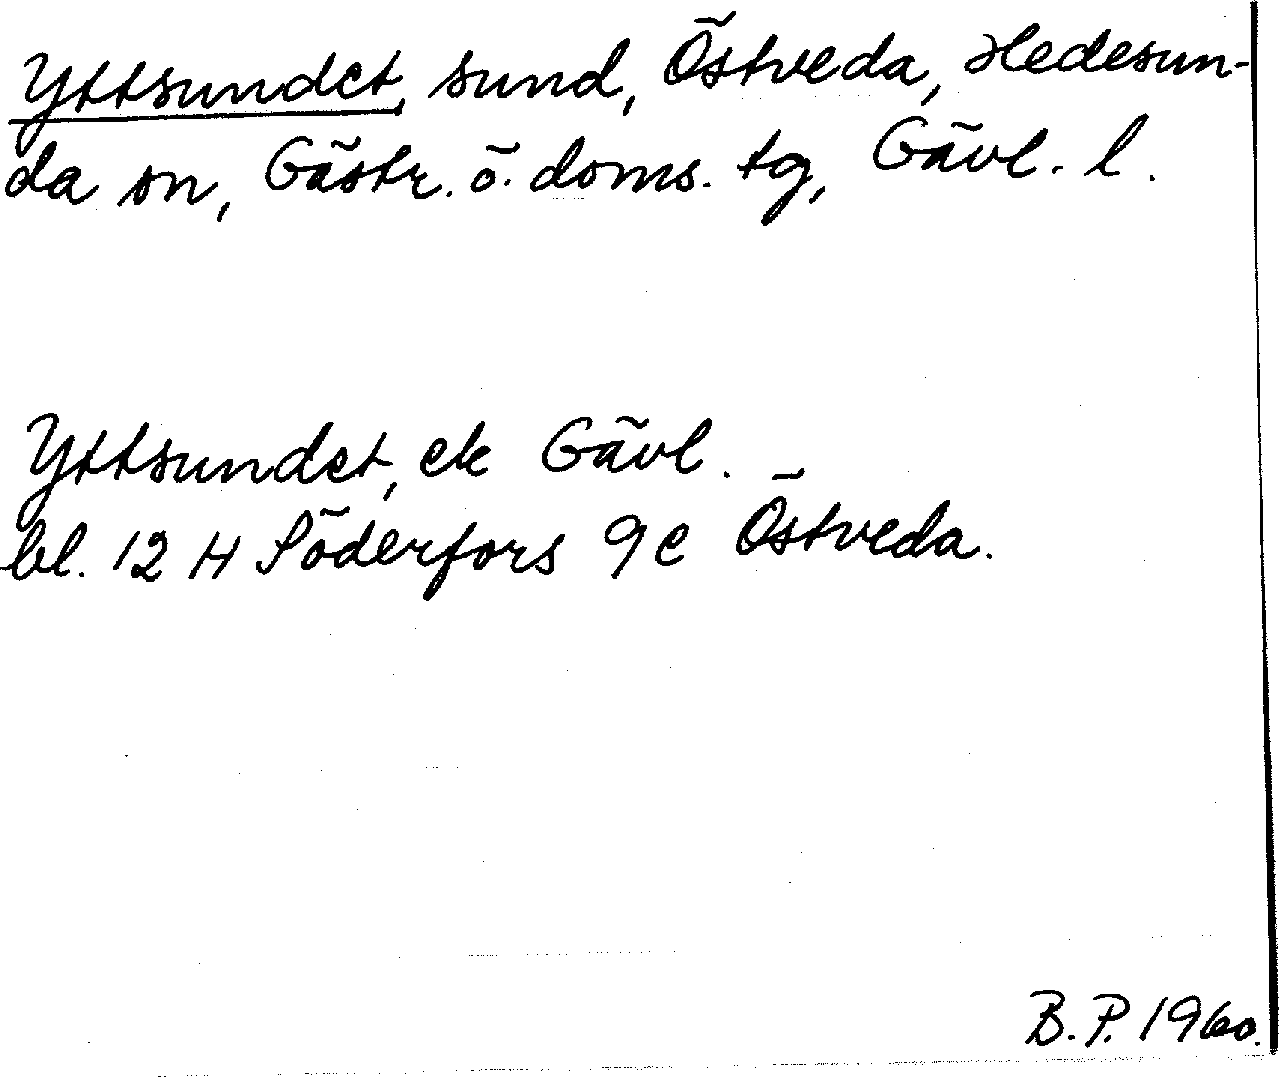 Yttsundet, sund, Östveda, Hedesun-
da sn, Gästr. ö. doms. tg, Gävl. l.
Yttsundet, ek Gävl.
bl. 12 H Söderfors 9 c Östveda.
B. P. 1960.